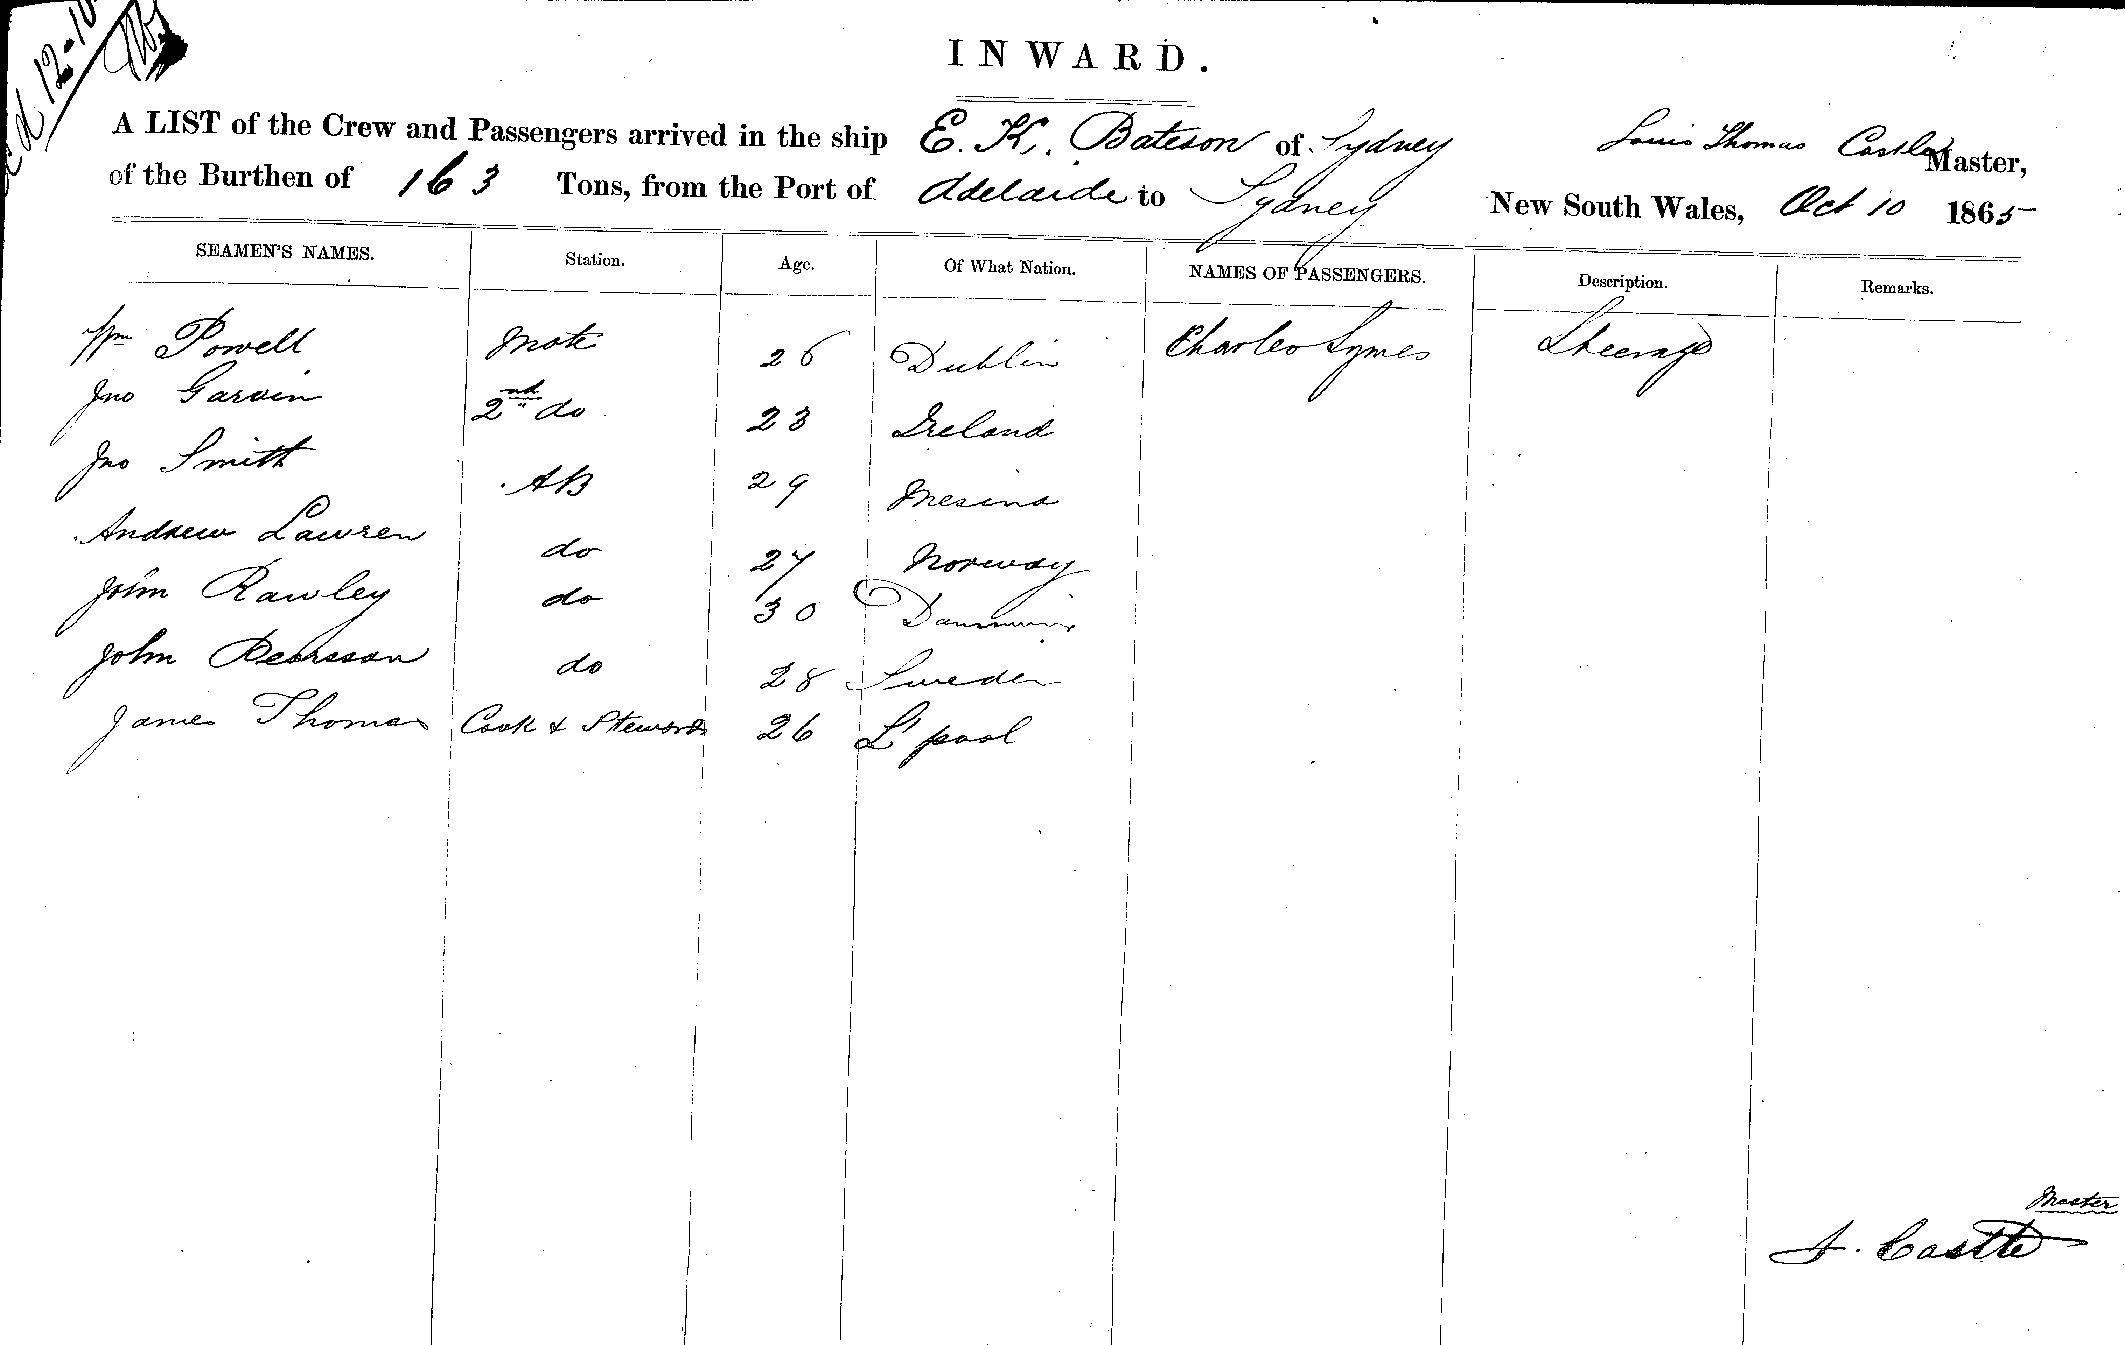 12-10
INWARD.
A LIST of the Crew and Passengers arrived in the ship E. K. Bateson of Sydney Louis Thomas Castle Master,
of the Burthen of 163 Tons, from the Port of Adelaide to Sydney New South Wales, Oct 10 1865
SEAMEN'S NAMES. Station. Age. Of What Nation. NAMES OF PASSENGERS. Description. Remarks.
Wm Powell Mate 26 Dublin Charles Symes Steerage
Jno Garvin 2nd do 23 Ireland
Jno Smith AB 29 Mesina
Andrew Lawren do 27 Norway
John Rawley do 30
John Pearsson do 28 Sweden
James Thomas Cook & Steward 26 L'pool
Master
Castle